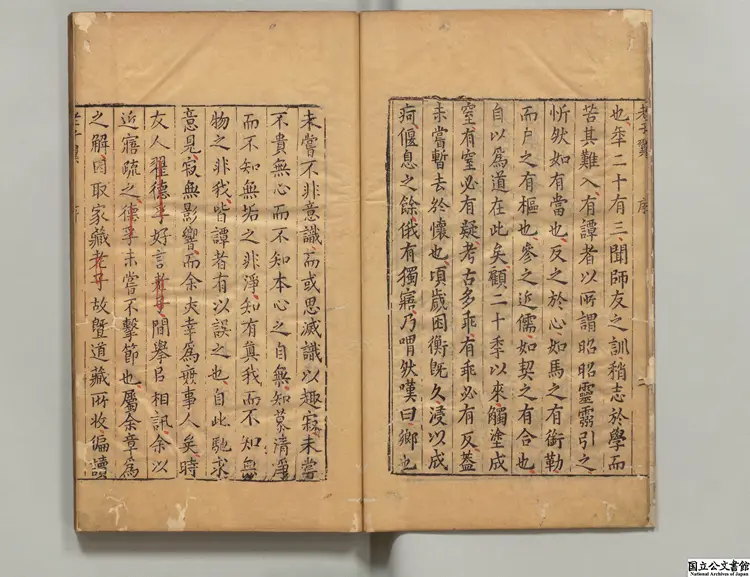 老子翼 序 二
也秊二十有三聞師友之訓稍志於學而
苦其難入有譚者以所謂昭昭靈霛引之
忻然如有當也反之於心如馬之有銜勒
而戶之有樞也參之近儒如契之有合也
自以爲道在此矣顧二十季以來觸塗成
窒有窒必有疑考古多乖有乖必有反蓋
未嘗暫去於懷也頃歲困衡旣久浸以成
痾偃息之餘俄有獨寤乃喟然嘆曰鄉也
未嘗不非意識而或思滅識以趣寂未嘗
不貴無心而不知本心之自無知慕清淨
而不知無垢之非淨知有眞我而不知無
物之非我皆譚者有以誤之也自此馳求
意見寂無影響而余夫幸爲廢事人矣時
友人翟德孚好言老子間舉㠯相訊余以
近寤疏之德孚未嘗不擊節也屬余章爲
之解因取家藏老子故曁道藏所收徧讀
老子翼 序
国立公文書館
National Archives of Japan